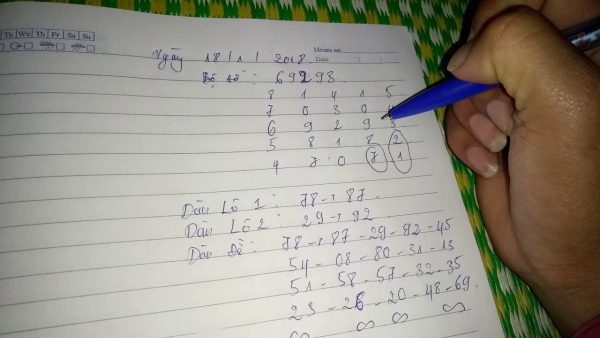 Tu We Th Fr Sa Su
Memo No.
Date / /
Ngày 18 / 1 / 2018.
69293.
8 1 4 1 5
7 0 3 0 4
6 9 2 9 3
5 8 1 8 2
4 7 0 7 1
Dàn Lô 1 : 78 → 87.
Dàn Lô 2 : 29 → 92
Dàn Đề : 78 → 87 - 29 - 92 - 45
54 - 08 - 80 - 31 - 13
51 - 58 - 57 - 32 - 35
23 - 26 - 20 - 48 - 69.